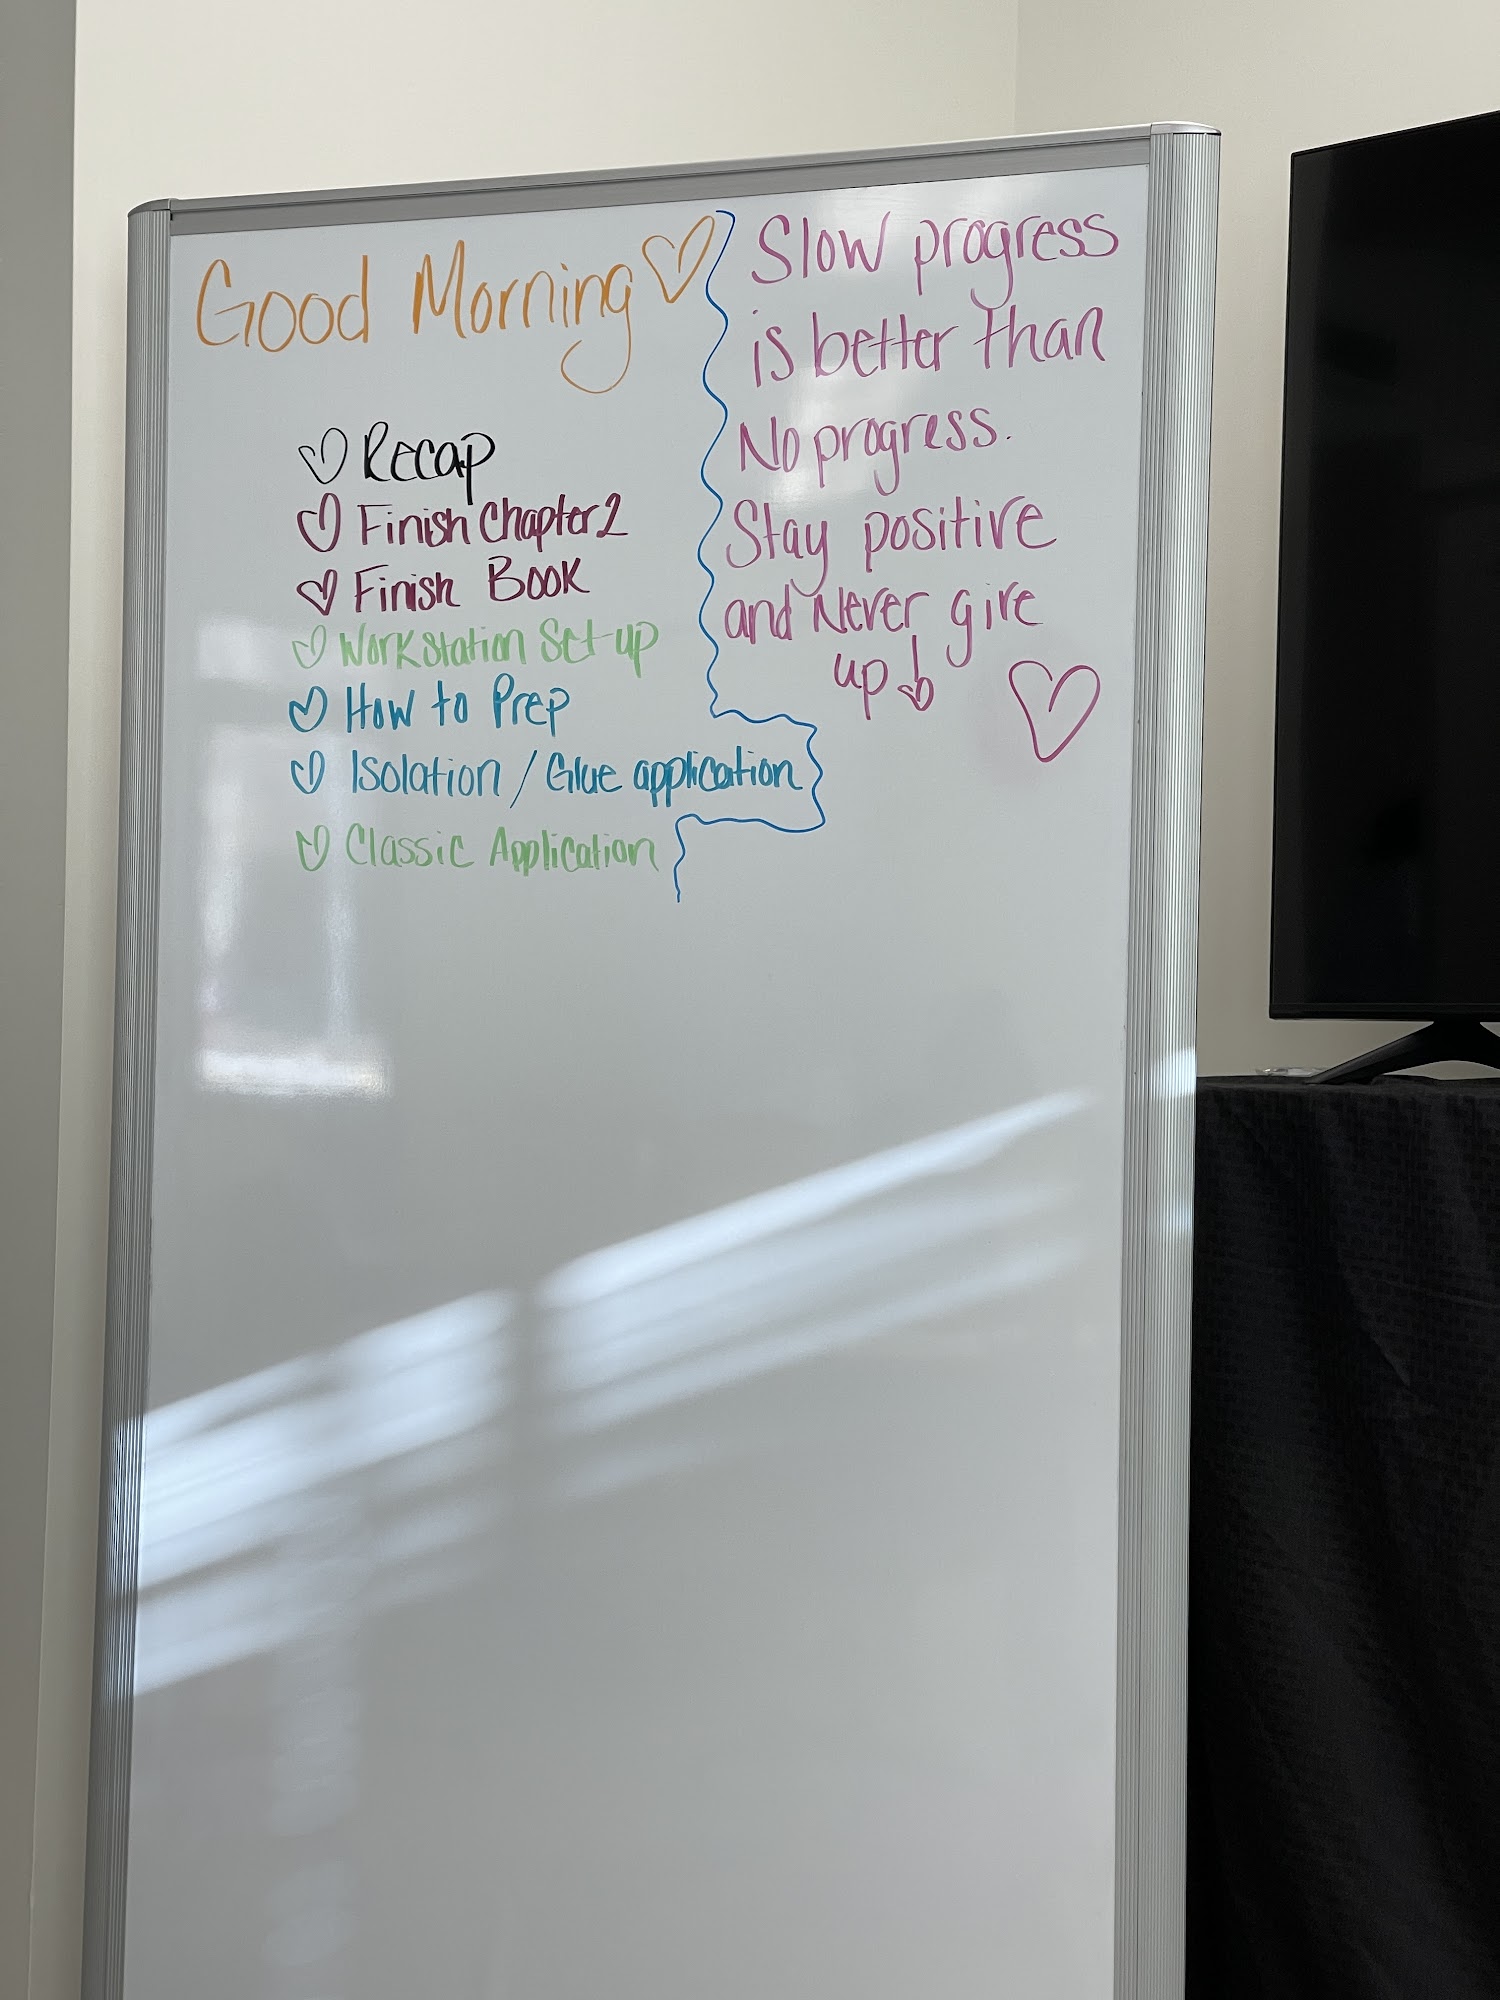 Good Morning
Recap
Finish Chapter 2
Finish Book
Workstation Set up
How to Prep
Isolation / Glue application
Classic Application
Slow progress
is better than
No progress.
Stay positive
and Never give
up!